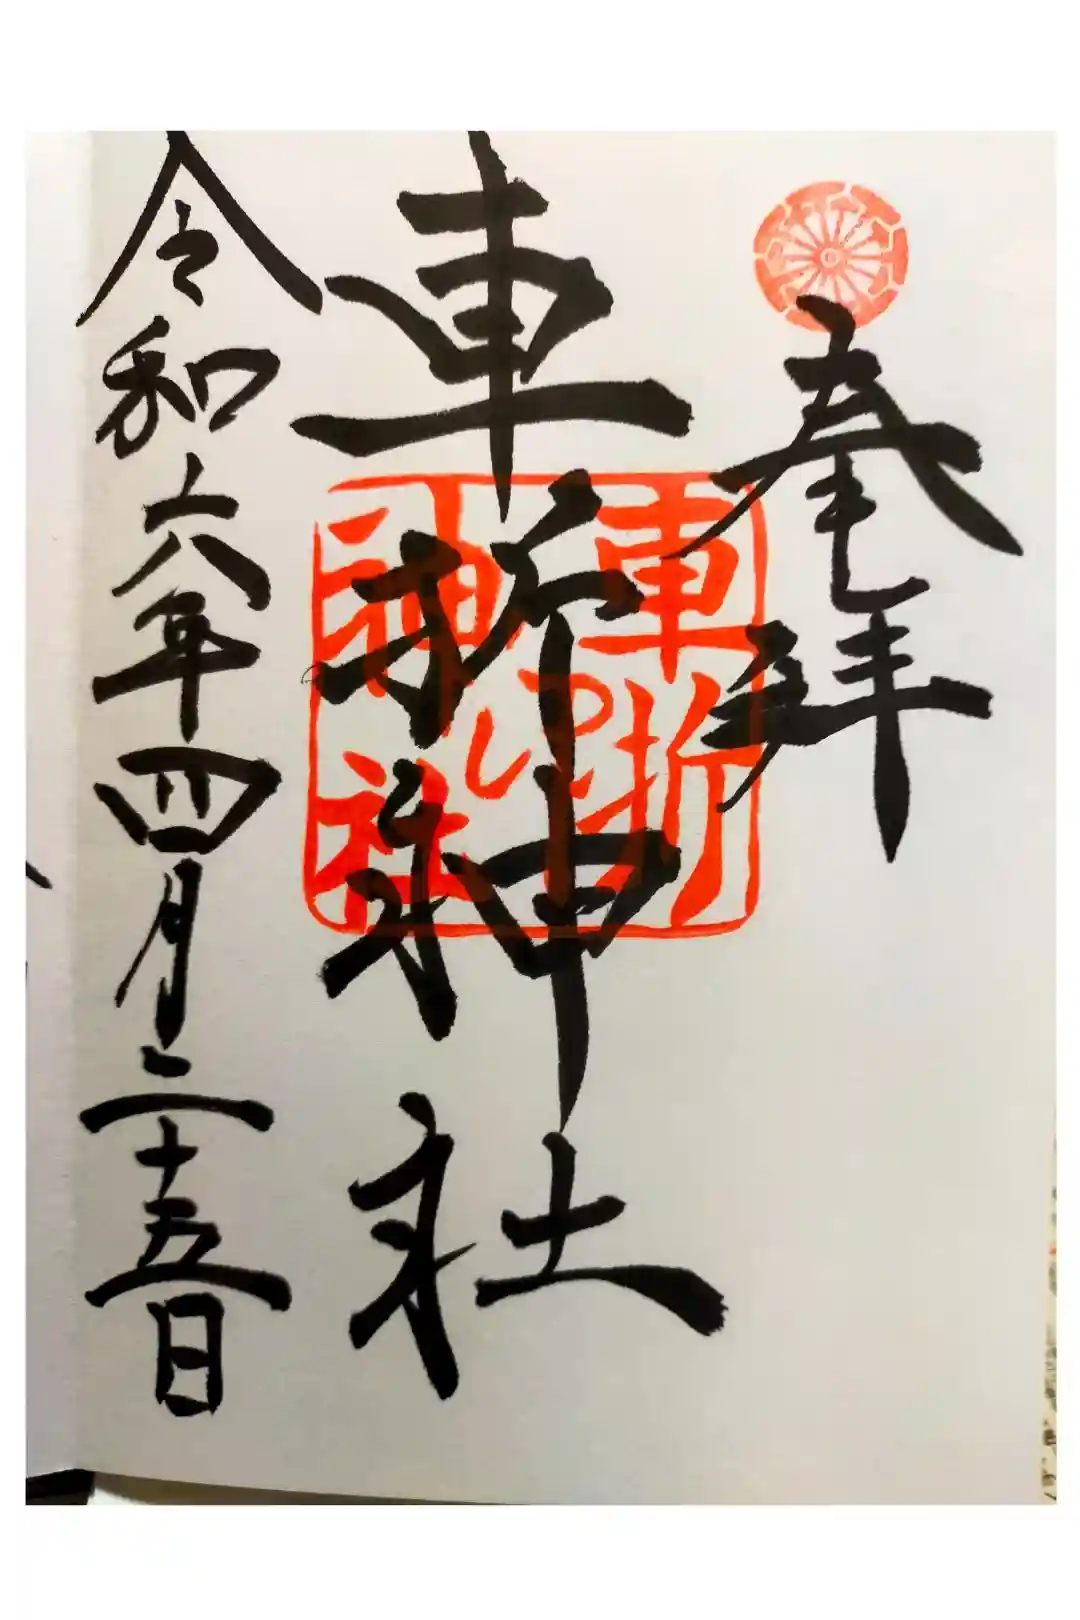 奉拝
車折神社
車折
之印
神社
令和六年四月二十五日